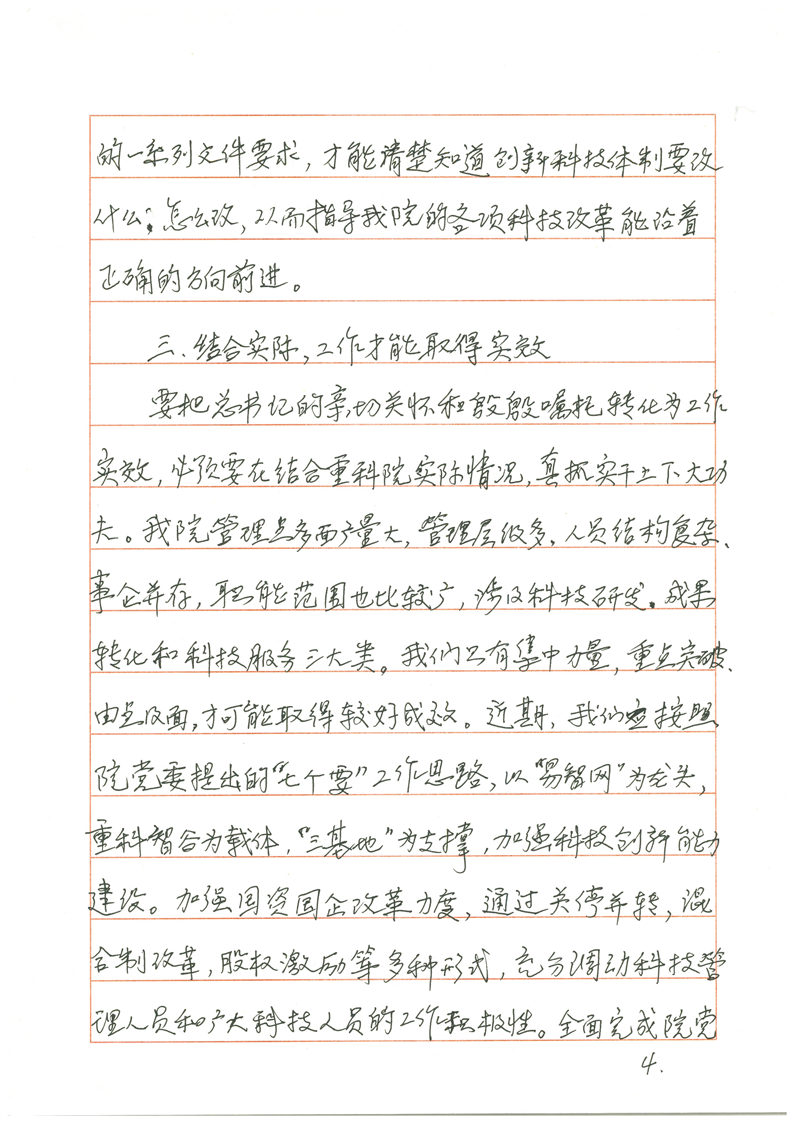 的一系列文件要求，才能清楚知道创新科技体制要改
什么；怎么改，从而指导我院的各项科技改革能沿着
正确的方向前进。
三、结合实际，工作才能取得实效
要把总书记的亲切关怀和殷殷嘱托转化为工作
实效，必须要在结合重科院实际情况，真抓实干上下大功
夫。我院管理点多面广量大，管理层级多、人员结构复杂、
事企并存，职能范围也比较广，涉及科技研发、成果
转化和科技服务三大类。我们只有集中力量，重点突破、
由点及面，才可能取得较好成效。近期，我们应按照
院党委提出的“七个要”工作思路，以“易智网”为龙头，
重科智谷为载体，“三基地”为支撑，加强科技创新能力
建设。加强国资国企改革力度，通过关停并转，混
合制改革，股权激励等多种形式，充分调动科技管
理人员和广大科技人员的工作积极性。全面完成院党
4.